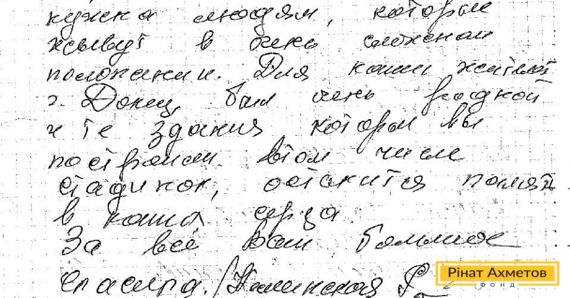 нужна людям, которые
живут в очень сложном
положении. Для наши жителей
г. Донец, был очень родной
и те здания которые вы
построили. втом числе
стадион, остаится память
в наших серца
За всё вам большое
спасибо.
Рінат Ахметов
ФОНД